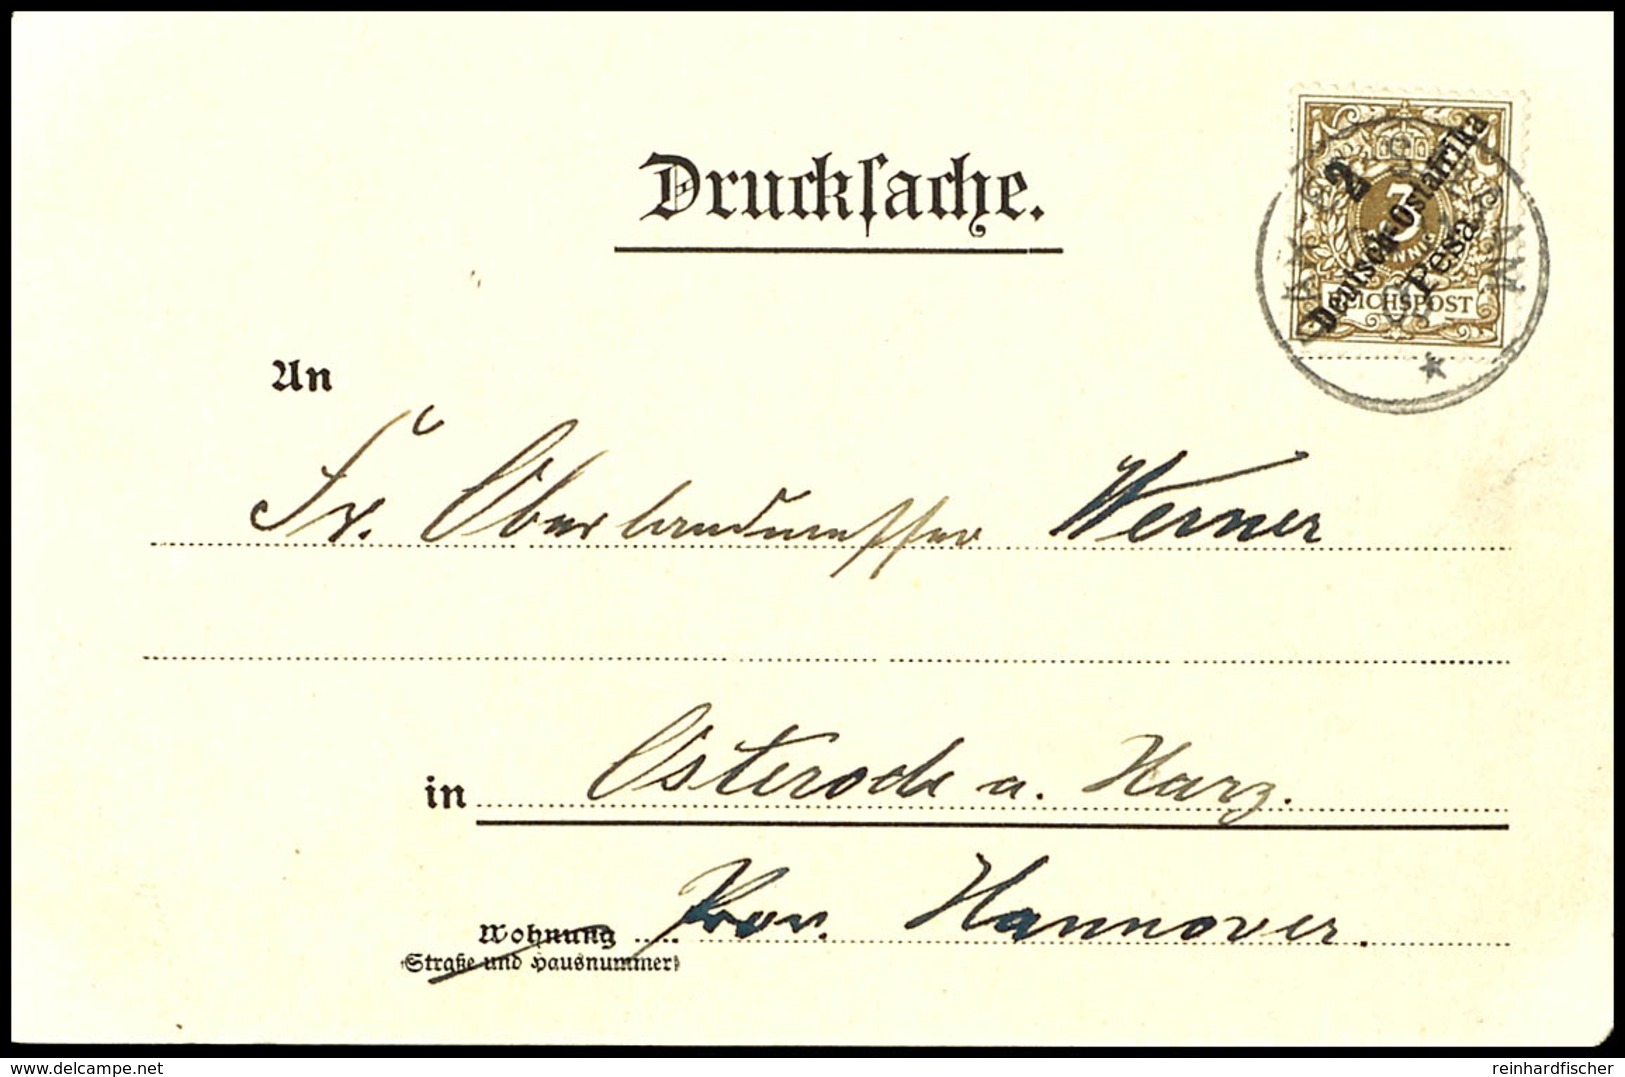 Drucksache.
2
Deutsch-Ostafrika
Pesa
3
REICHSPOST
An
Fr. Oberlandmesser Werner
in Osterode a. Harz.
Prov. Hannover.
Wohnung
(Straße und Hausnummer)
www.delcampe.net
reinhardfischer